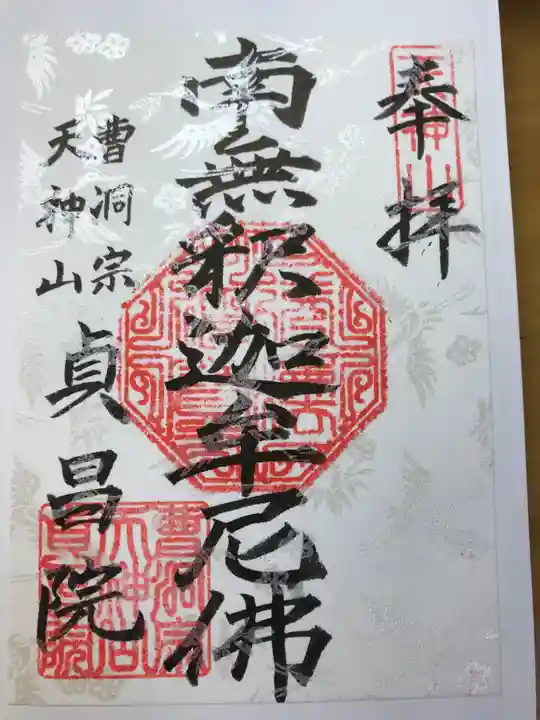 奉拝
南無釈迦牟尼佛
曹洞宗
天神山
貞昌院
天神山
曹洞宗